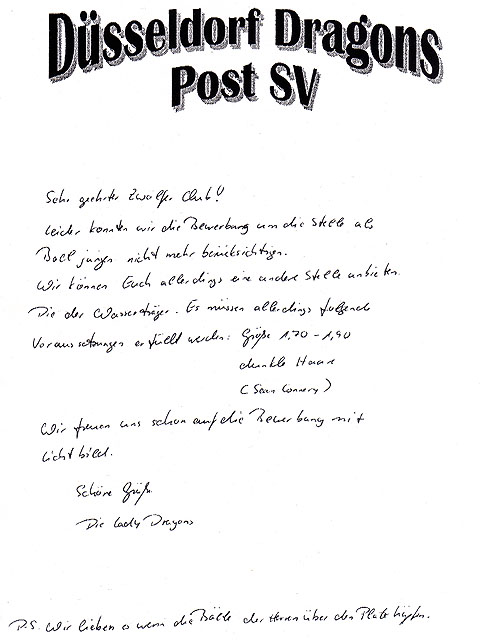 Düsseldorf Dragons
Post SV
Sehr geehrter Zwölfer Club!
leider konnten wir die Bewerbung um die Stelle als
Balljungen nicht mehr berücksichtigen.
Wir können Euch allerdings eine andere Stelle anbieten.
Die der Wasserträger. Es müssen allerdings folgende
Voraussetzungen erfüllt werden: Größe 1,70 - 1,90
dunkle Haare
(Sean Connery)
Wir freuen uns schon auf die Bewerbung mit
Lichtbild.
Schöne Grüße
Die Lady Dragons
P.S. Wir lieben es wenn die Bälle der Herren über den Platz hüpfen.